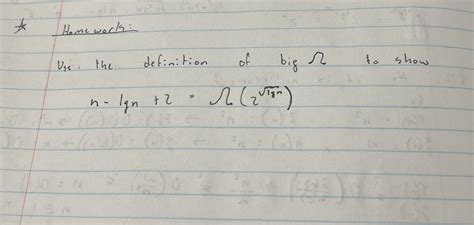 * Homework:
Use the definition of big Ω to show
n - lgn + 2 = Ω(2^√lgn)